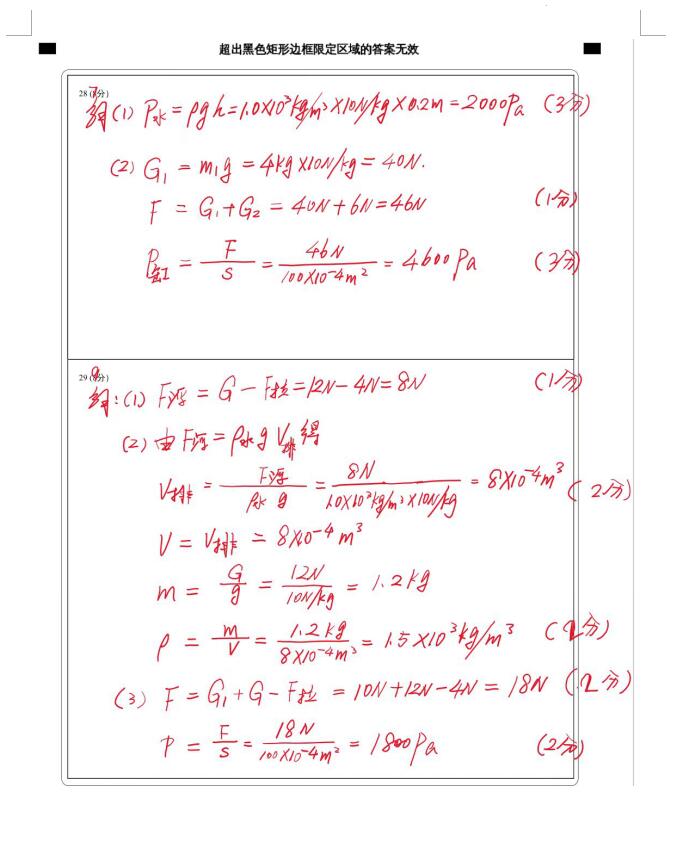 超出黑色矩形边框限定区域的答案无效
28 (7分)
解(1) P水 = ρgh = 1.0×10³kg/m³×10N/kg×0.2m = 2000Pa (3分)
(2) G₁ = m₁g = 4kg×10N/kg = 40N.
F = G₁+G₂ = 40N+6N = 46N (1分)
P缸 = F/S = 46N/100×10⁻⁴m² = 4600Pa (3分)
29 (9分)
解:(1) F浮 = G - F拉 = 12N - 4N = 8N (1分)
(2) 由F浮 = ρ水gV排得
V排 = F浮/ρ水g = 8N/1.0×10³kg/m³×10N/kg = 8×10⁻⁴m³ (2分)
V = V排 = 8×10⁻⁴m³
m = G/g = 12N/10N/kg = 1.2kg
ρ = m/V = 1.2kg/8×10⁻⁴m³ = 1.5×10³kg/m³ (2分)
(3) F = G₁+G-F拉 = 10N+12N-4N = 18N (2分)
P = F/S = 18N/100×10⁻⁴m² = 1800Pa (2分)